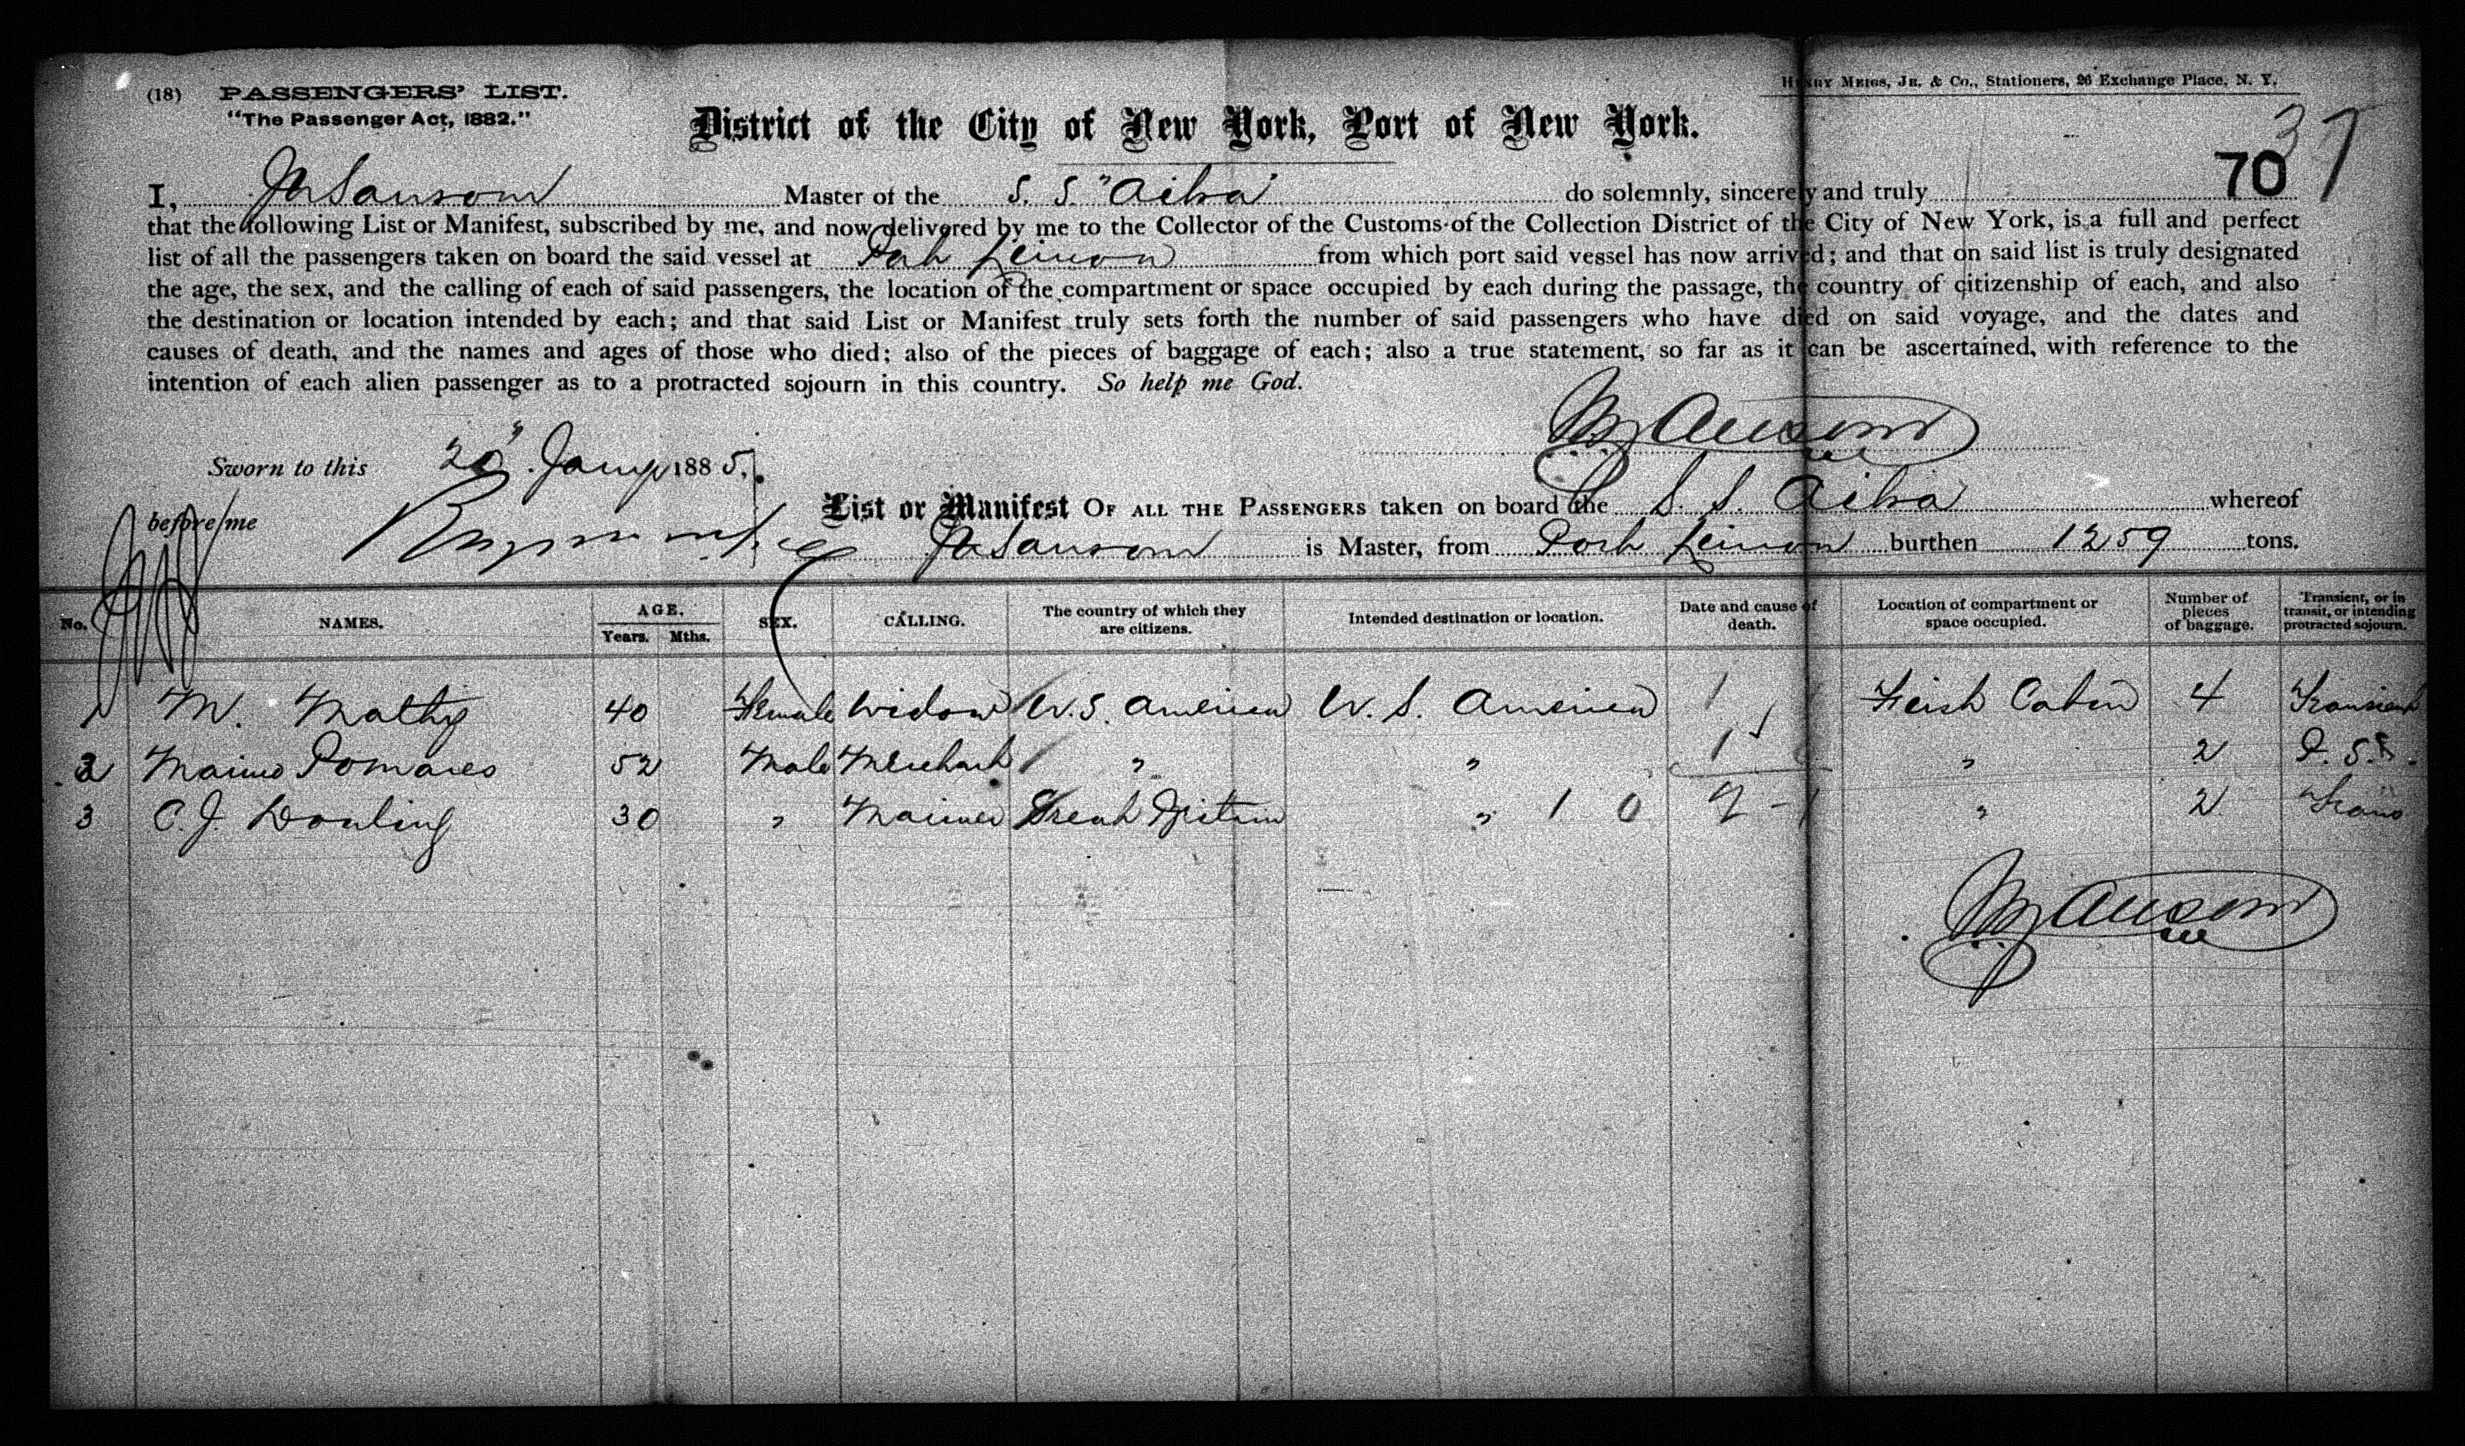 (18) PASSENGERS' LIST.
"The Passenger Act, 1882."
HENRY MEIGS, JR. & CO., Stationers, 26 Exchange Place, N. Y.
District of the City of New York, Port of New York.
37
70
I, Sansom Master of the S. S. "Ailsa" do solemnly, sincerely and truly
that the following List or Manifest, subscribed by me, and now delivered by me to the Collector of the Customs of the Collection District of the City of New York, is a full and perfect
list of all the passengers taken on board the said vessel at Port Limon from which port said vessel has now arrived; and that on said list is truly designated
the age, the sex, and the calling of each of said passengers, the location of the compartment or space occupied by each during the passage, the country of citizenship of each, and also
the destination or location intended by each; and that said List or Manifest truly sets forth the number of said passengers who have died on said voyage, and the dates and
causes of death, and the names and ages of those who died; also of the pieces of baggage of each; also a true statement, so far as it can be ascertained, with reference to the
intention of each alien passenger as to a protracted sojourn in this country. So help me God.
Sansom
Sworn to this 20" Jany 1885.
before me
List or Manifest OF ALL THE PASSENGERS taken on board the S. S. Ailsa whereof
Sansom is Master, from Port Limon burthen 1259 tons.
No. NAMES. AGE. Years. Mths. SEX. CALLING. The country of which they are citizens. Intended destination or location. Date and cause of death. Location of compartment or space occupied. Number of pieces of baggage. Transient, or in transit, or intending protracted sojourn.
1 M. Mathy 40 Female Widow U. S. America U. S. America First Cabin 4 Transient
2 Pomares 52 Male Merchant " " " 2 P. S.
3 C. J. Dowling 30 " Mariner Great Britain " 10 " 2 Trans
Sansom